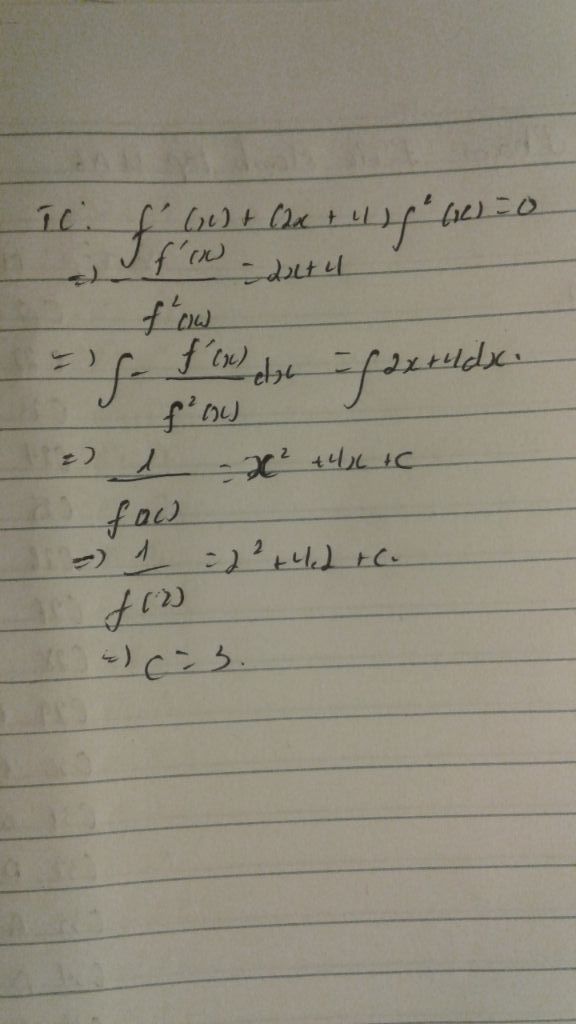 TC: f'(x) + (2x + 4) f²(x) = 0
=) - f'(x) / f²(x) = 2x + 4
=) ∫ - f'(x) / f²(x) dx = ∫ 2x + 4 dx.
=) 1 / f(x) = x² + 4x + c
=) 1 / f(2) = 2² + 4.2 + c.
=) c = 3.